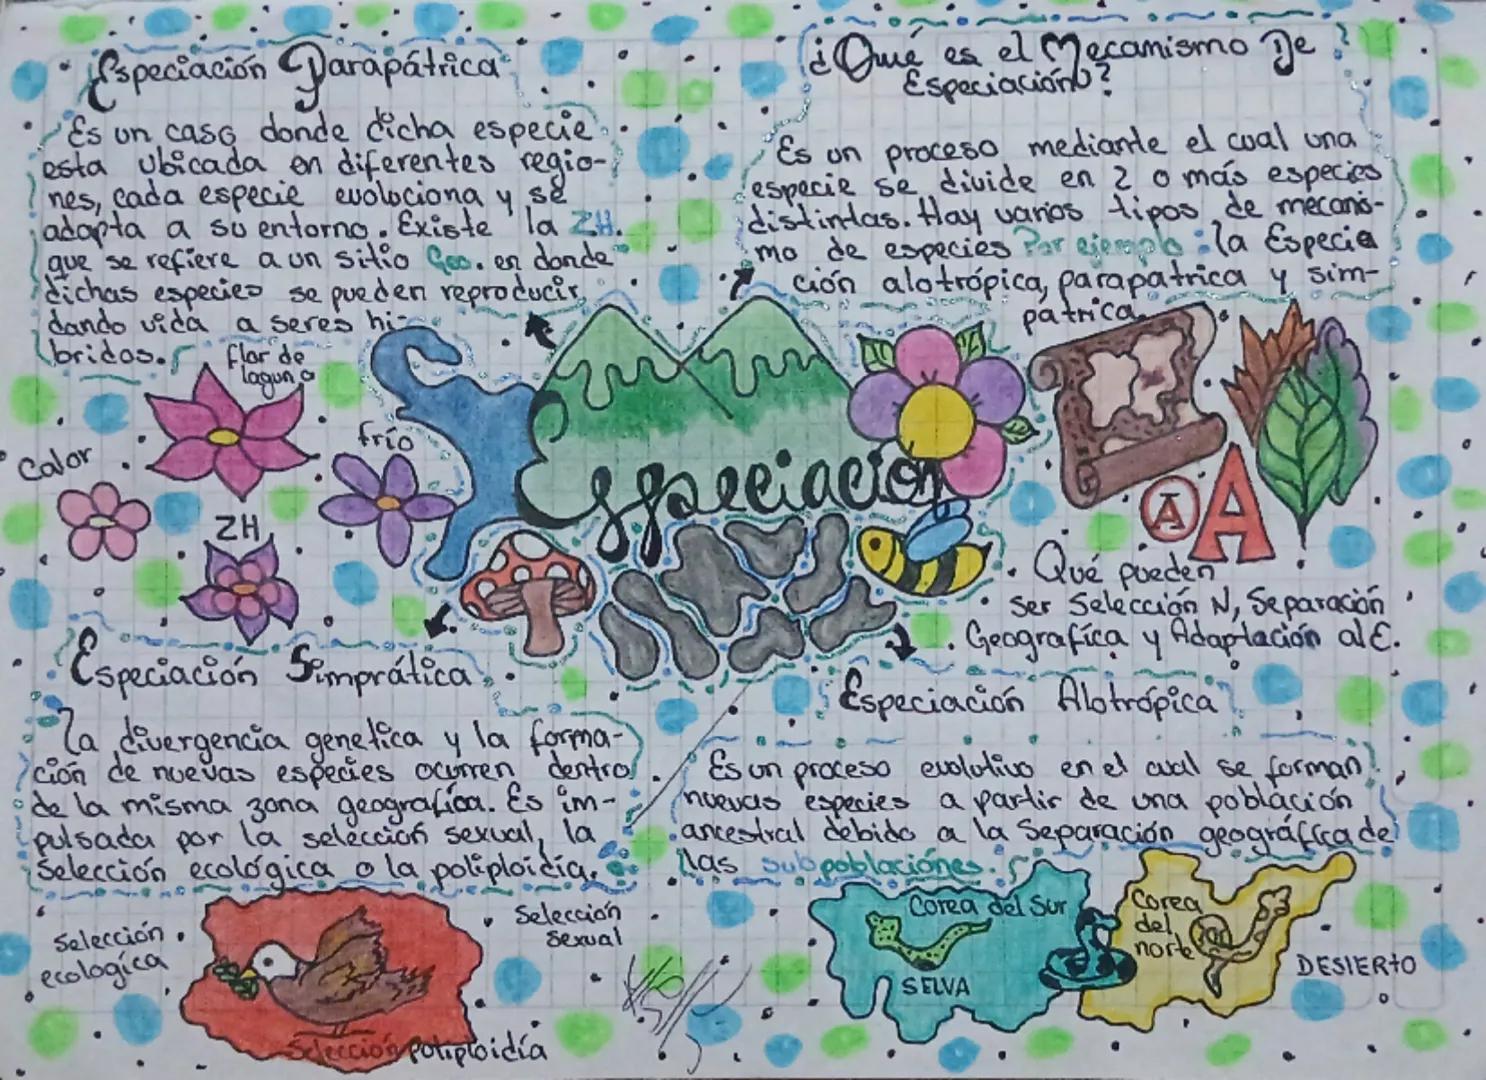 Especiación Parapátrica
Es un caso donde dicha especie
esta ubicada en diferentes regio-
nes, cada especie evoluciona y se
adapta a su entorno. Existe la ZH.
que se refiere a un sitio Geo. en donde
dichas especies se pueden reproducir
dando vida a seres hi-
bridos.
flor de
laguna
Calor
frío
ZH
¿Qué es el Mecanismo De
Especiación?
Es un proceso mediante el cual una
especie se divide en 2 o más especies
distintas. Hay varios tipos de mecanis-
mo de especies Por ejemplo: la Especia
ción alotrópica, parapatrica y sim-
patrica.
Especiación
Ā A
Qué pueden
ser Selección N, Separación
Geografíca y Adaptación al E.
Especiación Simprática
La divergencia genetica y la forma-
ción de nuevas especies ocurren dentro
de la misma zona geografíca. Es im-
pulsada por la selección sexual, la
Selección ecológica o la poliploidía.
Selección
ecologica
Selección
Sexual
Selección poliploidía
Especiación Alotrópica
Es un proceso evolutivo en el cual se forman
nuevas especies a partir de una población
ancestral debido a la Separación geográfica de
las subpoblaciónes.
Corea del Sur
SELVA
Corea
del
norte
DESIERTO